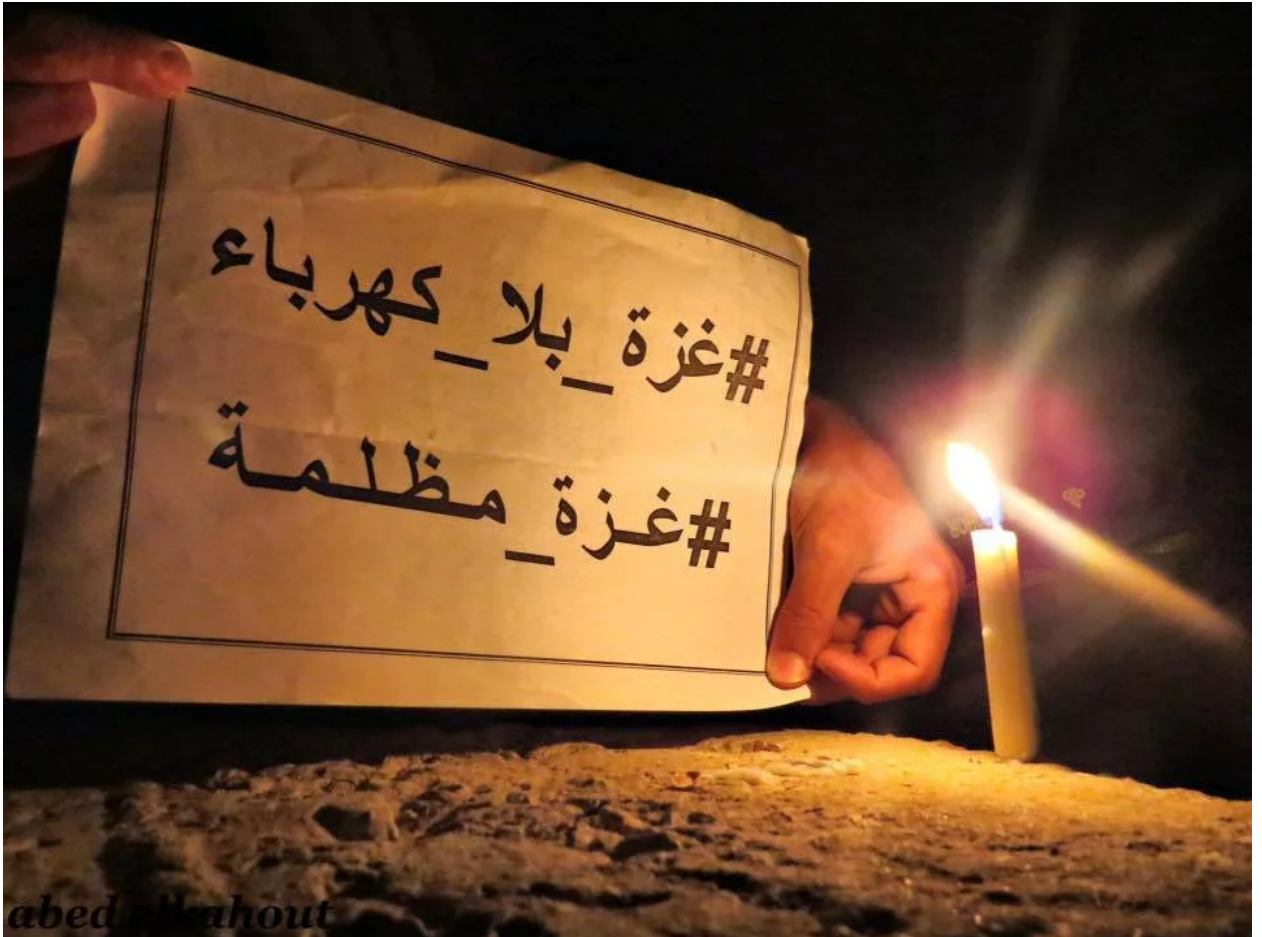 #غزة_بلا_كهرباء
#غـزة_مظلـمـة
abed elkahout